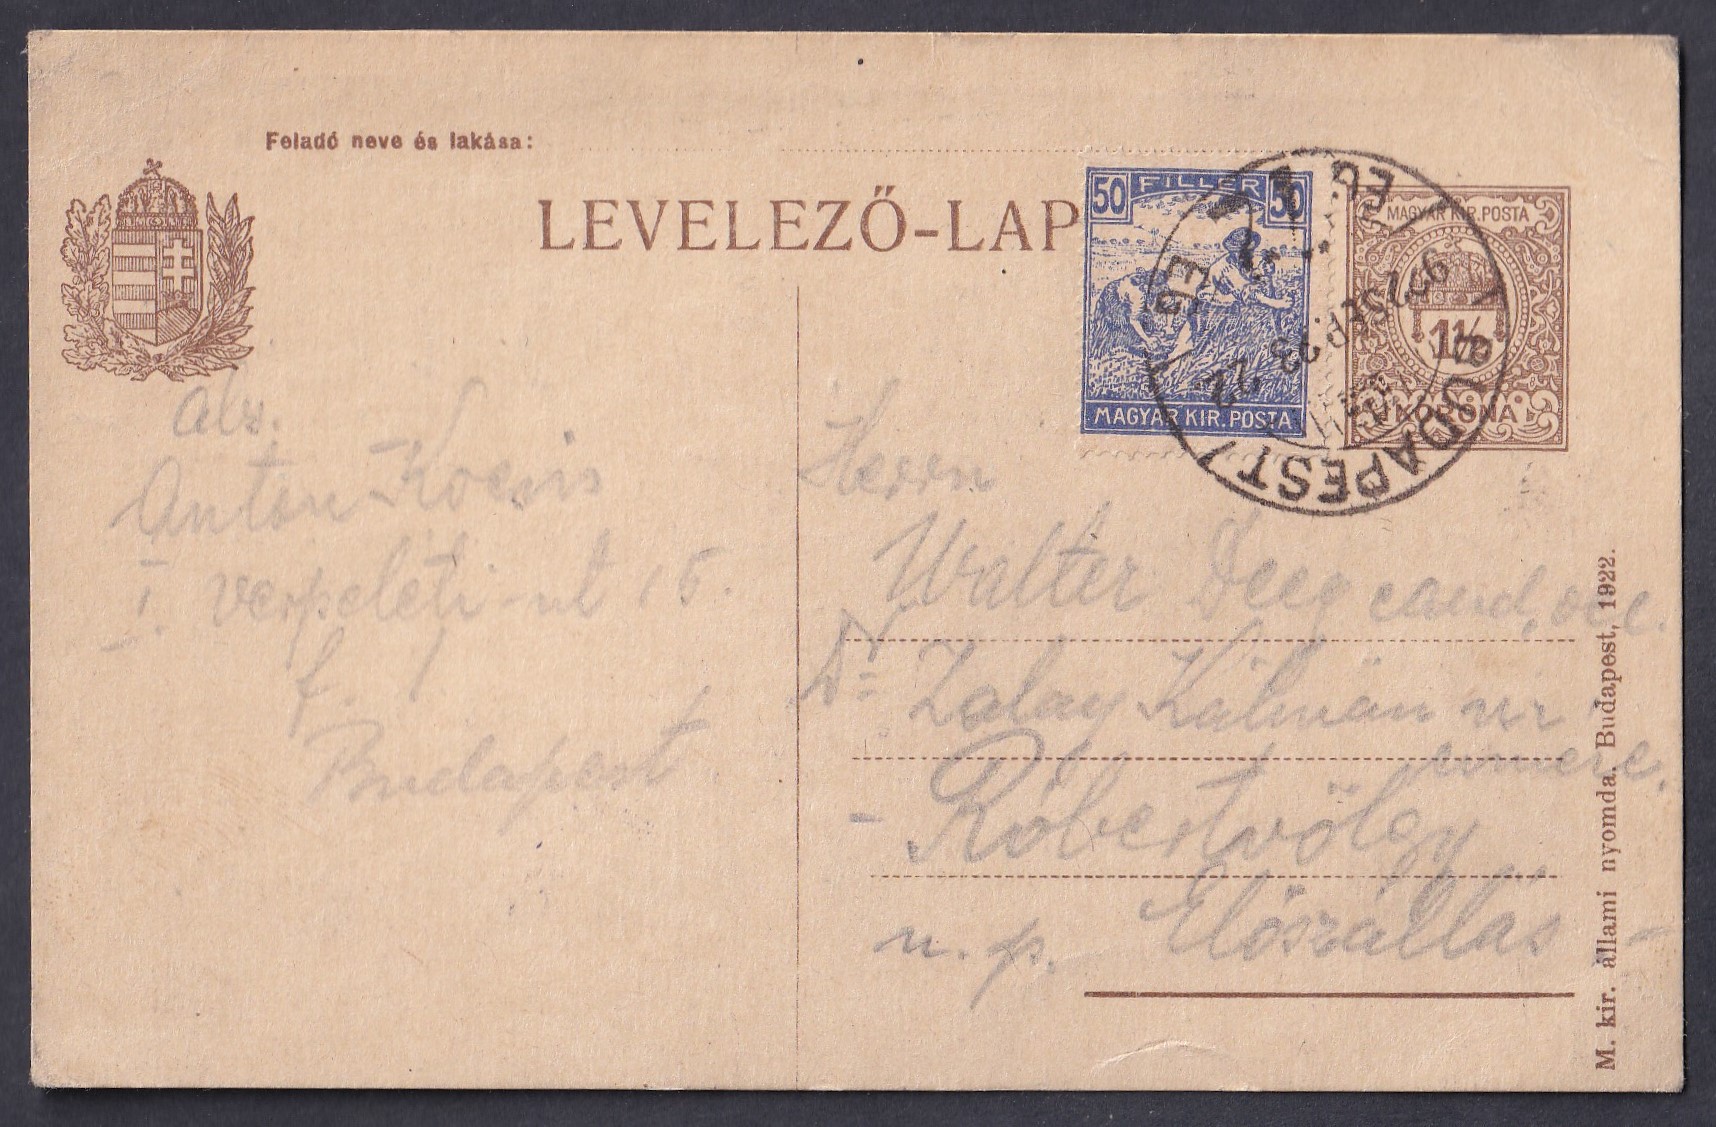 Feladó neve és lakása:
LEVELEZŐ-LAP
50 FILLÉR 50
MAGYAR KIR. POSTA
MAGYAR KIR. POSTA
1½
KORONA
BUDAPEST
922 SEP 23
22
Abs.
Anton
I. verpeléti-ut 15.
f. 1
Budapest
Herrn
Walter Deeg cand. oec.
Dr. Zalay Kálmán úr
címére.
- Róbertvölgy
u. p. Előszállás -
M. kir. állami nyomda. Budapest, 1922.